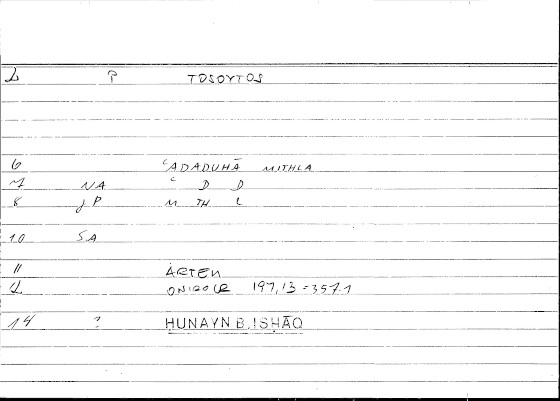 2 P TOSOYTOS
6 ʿADADUHĀ MITHLA
7 NA ʿ D D
8 jP M TH L
10 SA
11 ARTEM
12 ONIROCR 197,13 = 357.1
14 ? ḤUNAYN B. ISḤĀQ